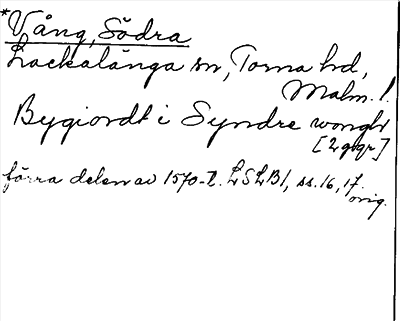 *Vång, Södra
Lackalänga sn, Torna hd,
Malm. l.
Bygiordt i Syndre wongh
[2 ggr]
förra delen av 1570-t. LSLB1, ss. 16, 17.
orig.